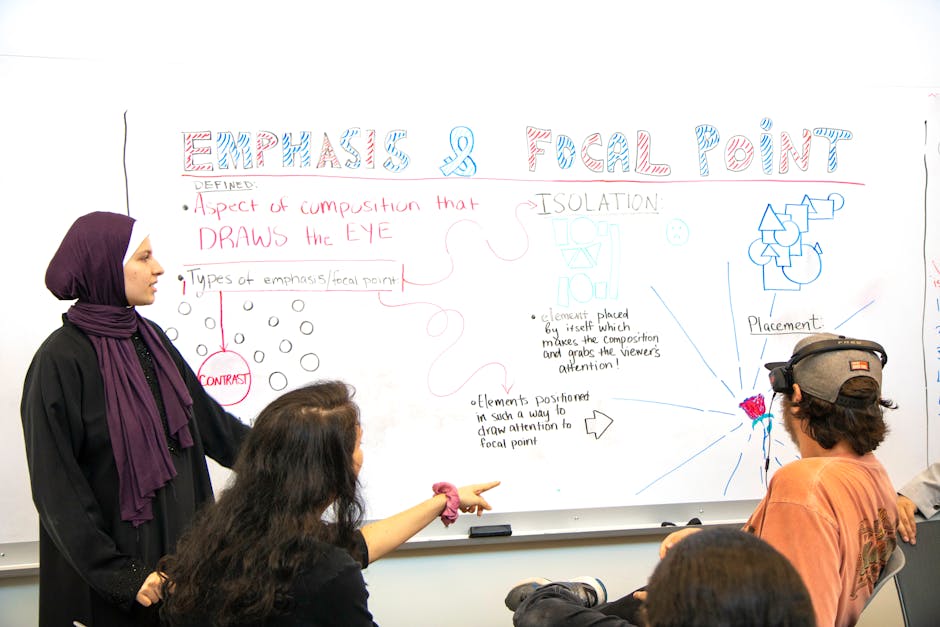 EMPHASIS & FOCAL POINT
DEFINED:
• ASPECT of composition that
DRAWS the EYE
• Types of emphasis/focal point
CONTRAST
ISOLATION:
• element placed
by itself which
makes the composition
and grabs the viewer's
attention!
Placement:
• Elements positioned
in such a way to
draw attention to
focal point